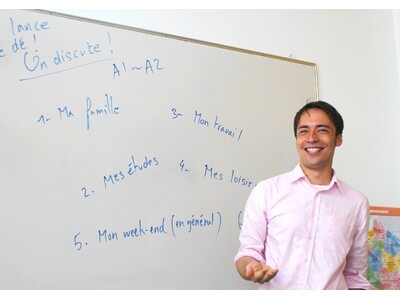 lance
dé !
On discute !
A1 ~ A2
1- Ma famille
3- Mon travail
2. Mes études
4- Mes loisir
5. Mon week-end (en général)